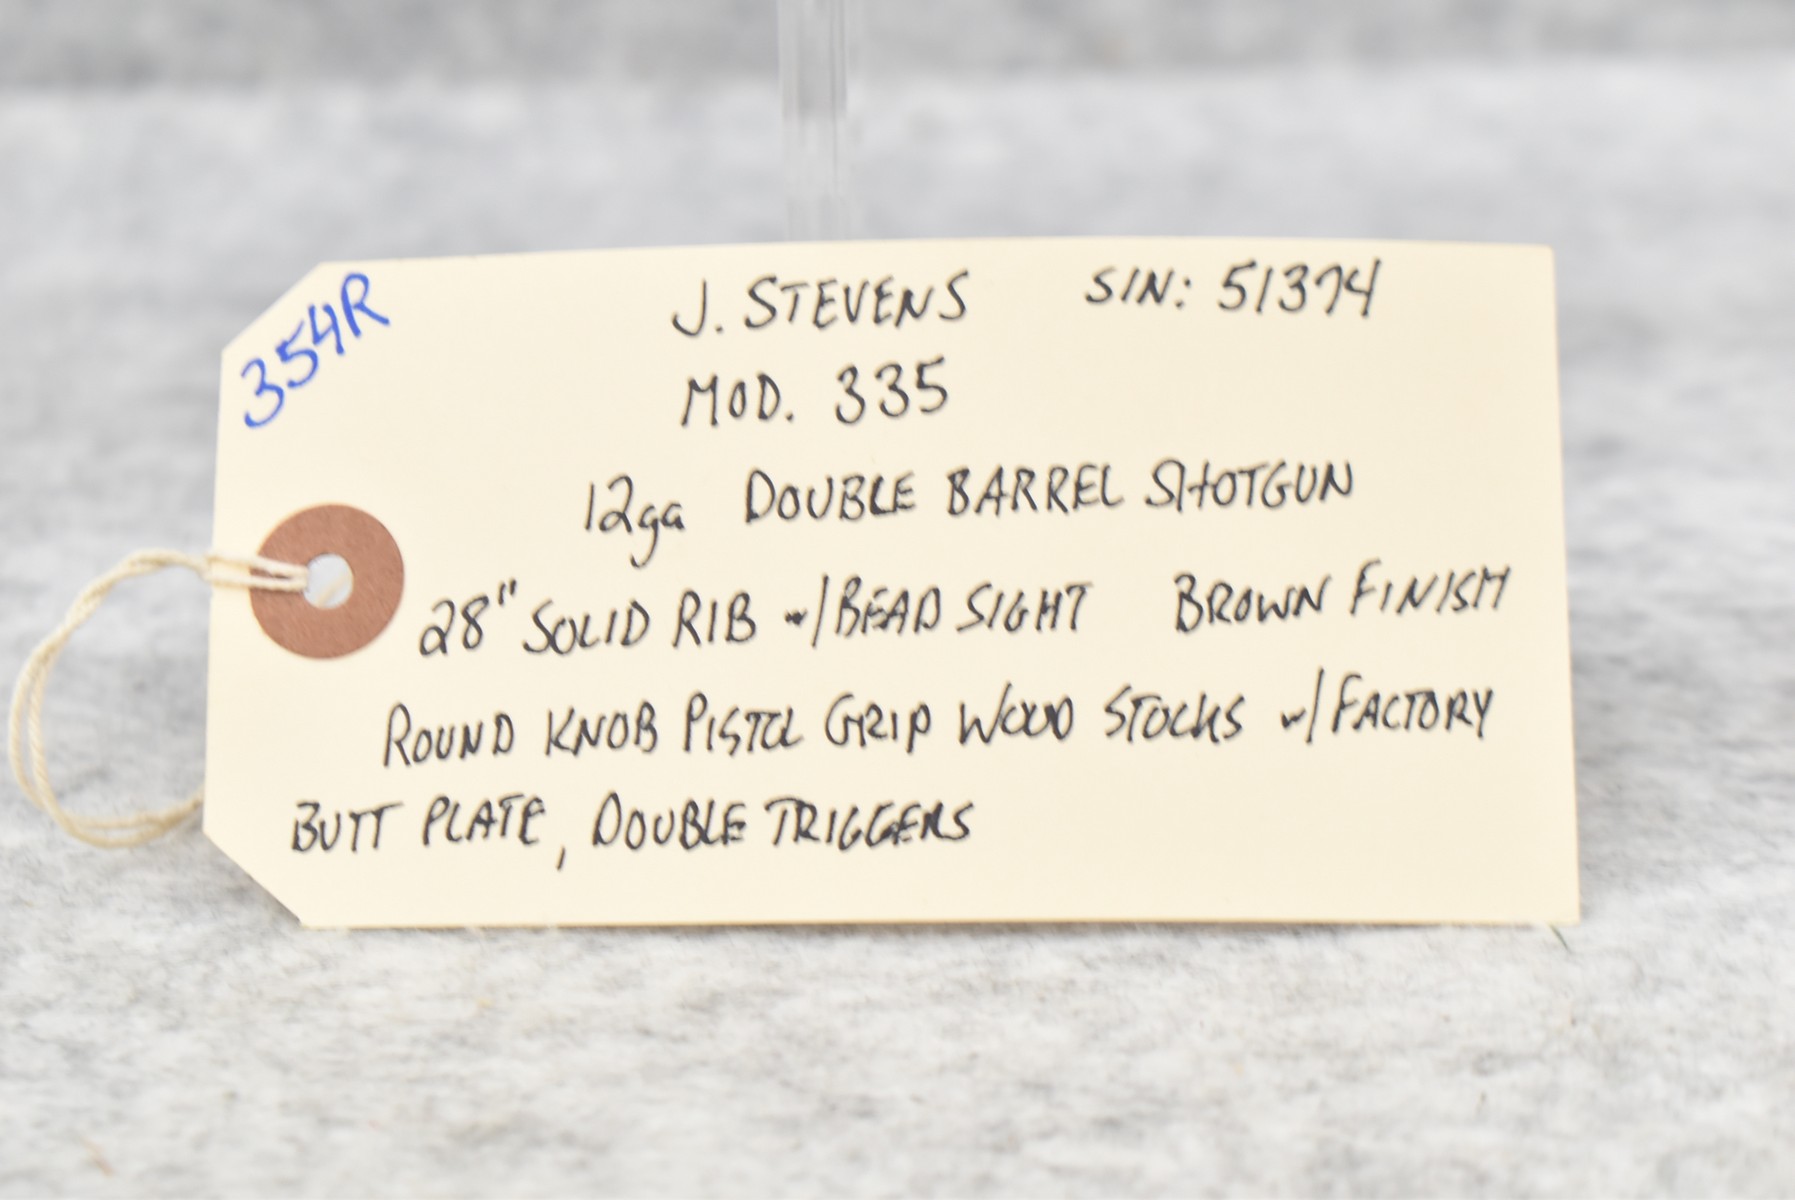 354R
J. STEVENS S/N: 51374
MOD. 335
12ga DOUBLE BARREL SHOTGUN
28" SOLID RIB w/BEAD SIGHT BROWN FINISH
ROUND KNOB PISTOL GRIP WOOD STOCKS w/FACTORY
BUTT PLATE, DOUBLE TRIGGERS